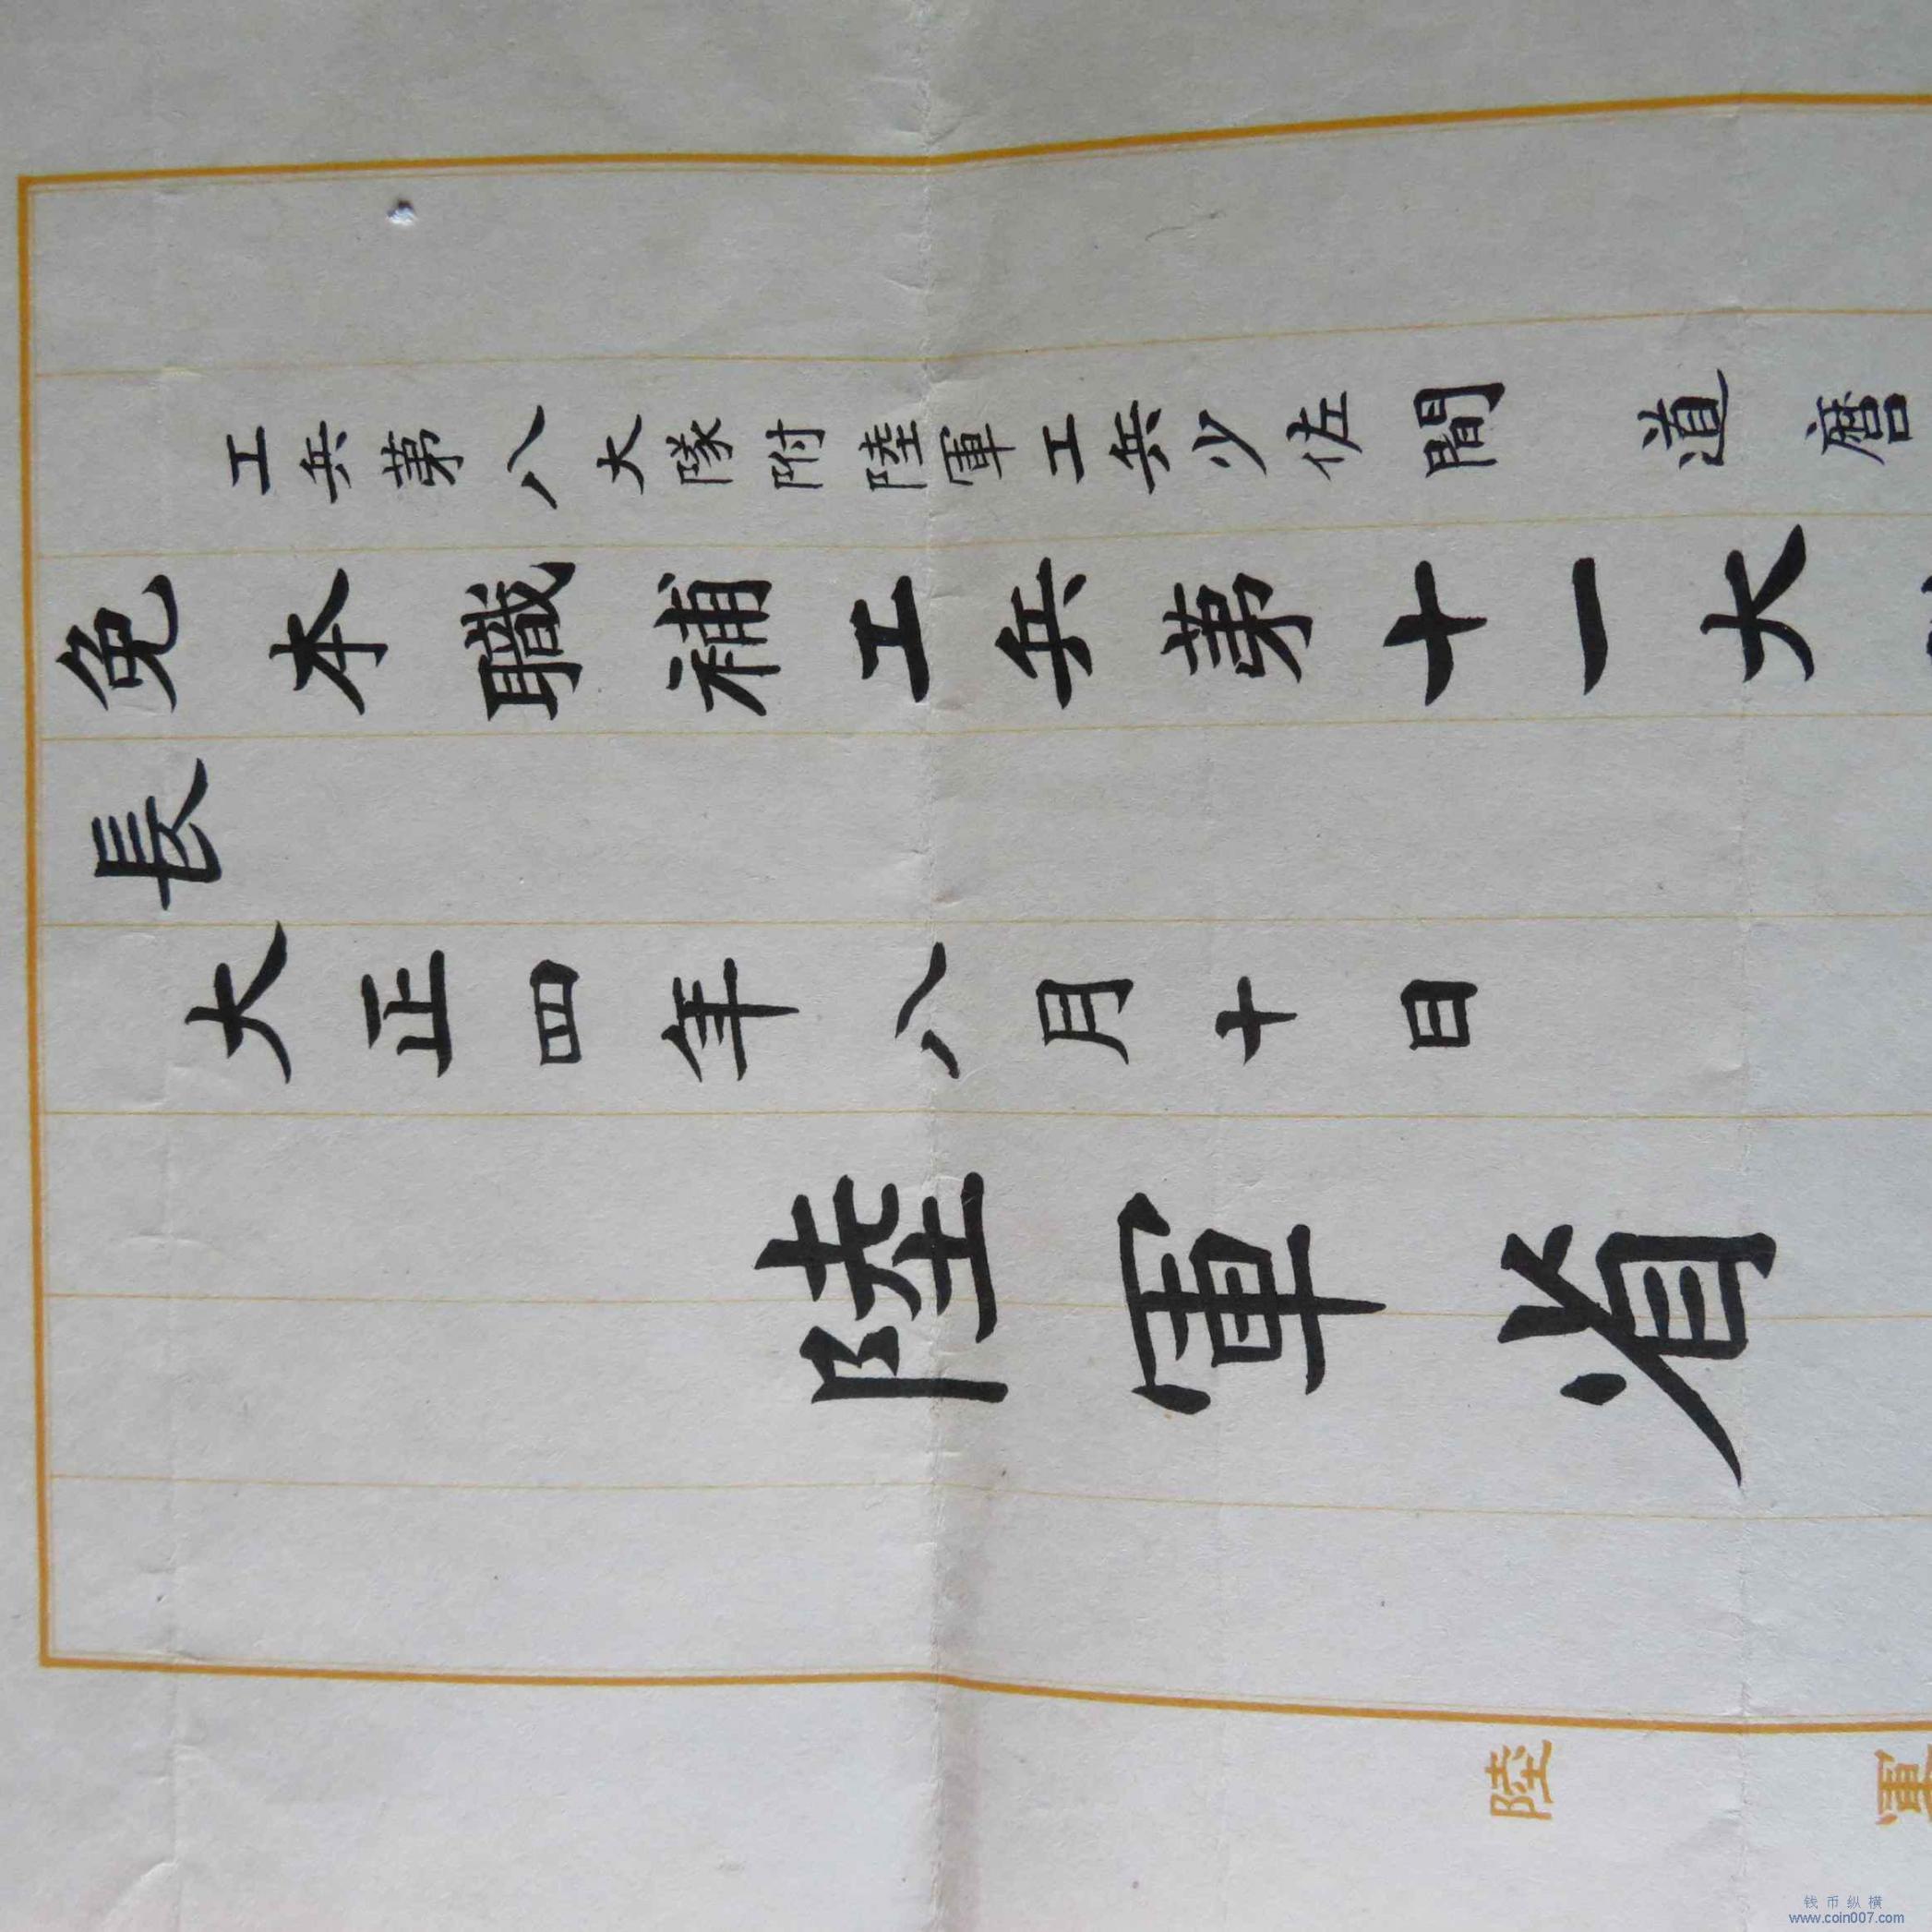 工兵第八大隊附陸軍工兵少佐間道麿
免本職補工兵第十一大
長
大正四年八月十日
陸軍省
陸軍
钱币纵横
www.coin007.com